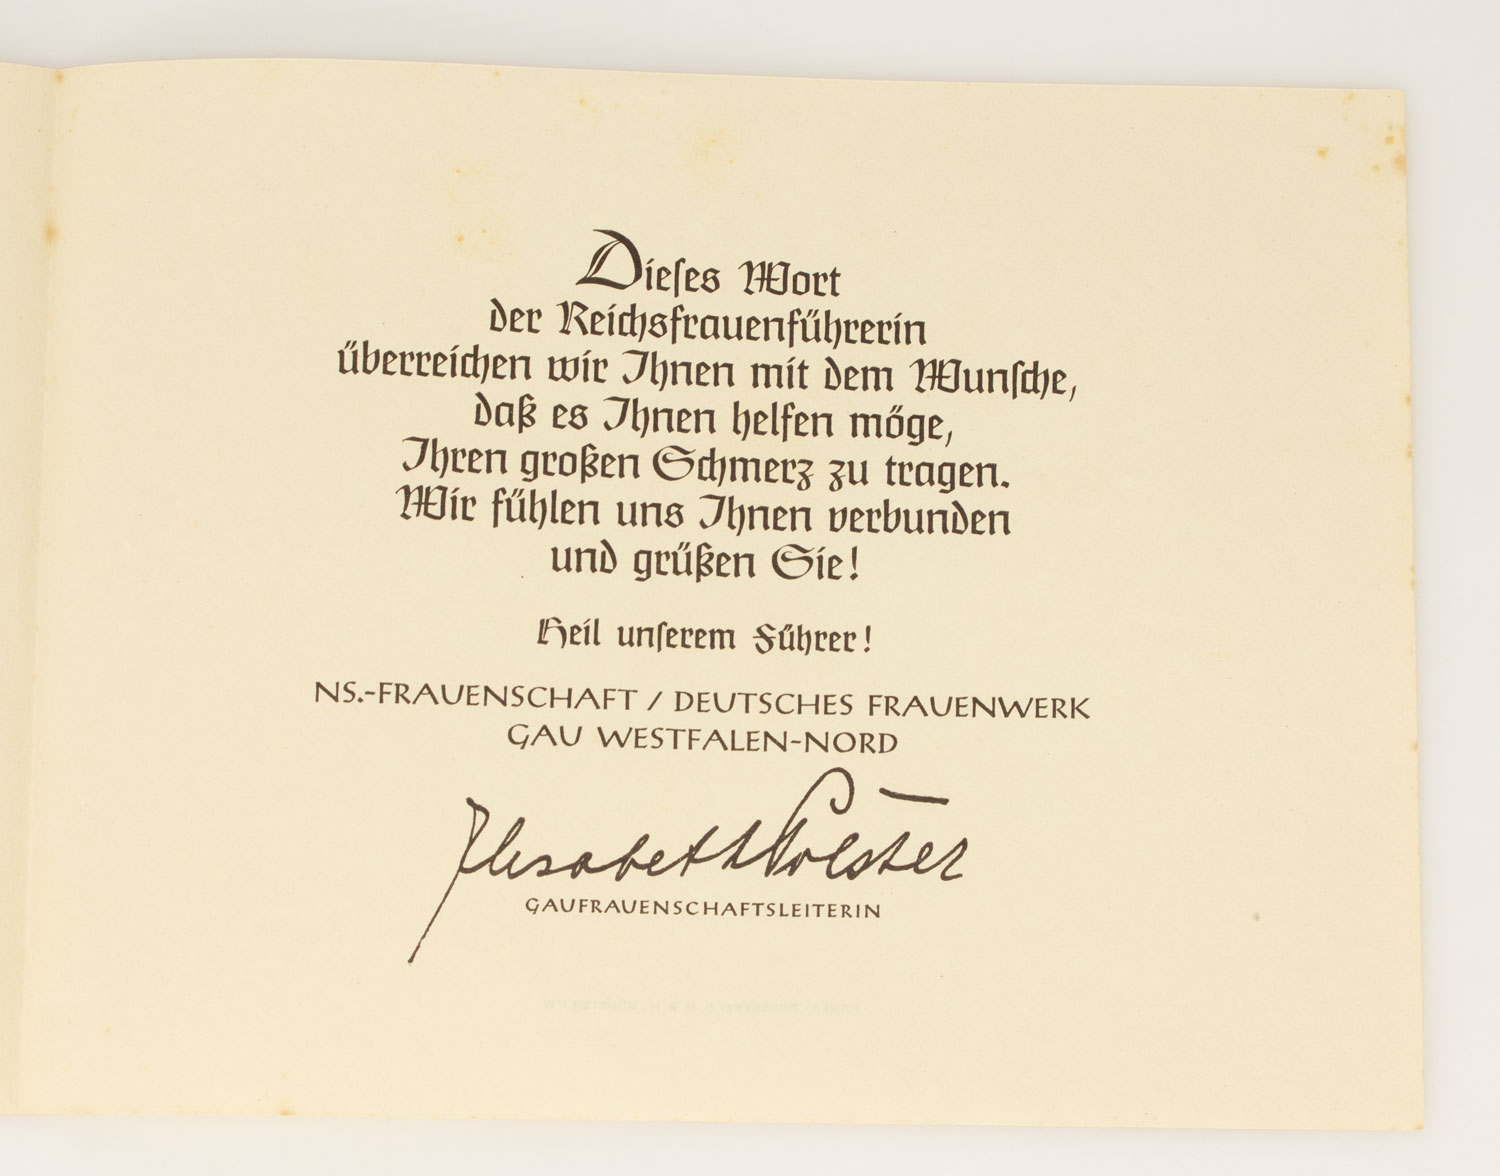 Dieses Wort
der Reichsfrauenführerin
überreichen wir Ihnen mit dem Wunsche,
daß es Ihnen helfen möge,
Ihren großen Schmerz zu tragen.
Wir fühlen uns Ihnen verbunden
und grüßen Sie!
Heil unserem Führer!
NS.-FRAUENSCHAFT / DEUTSCHES FRAUENWERK
GAU WESTFALEN-NORD
Elisabeth Polster
GAUFRAUENSCHAFTSLEITERIN